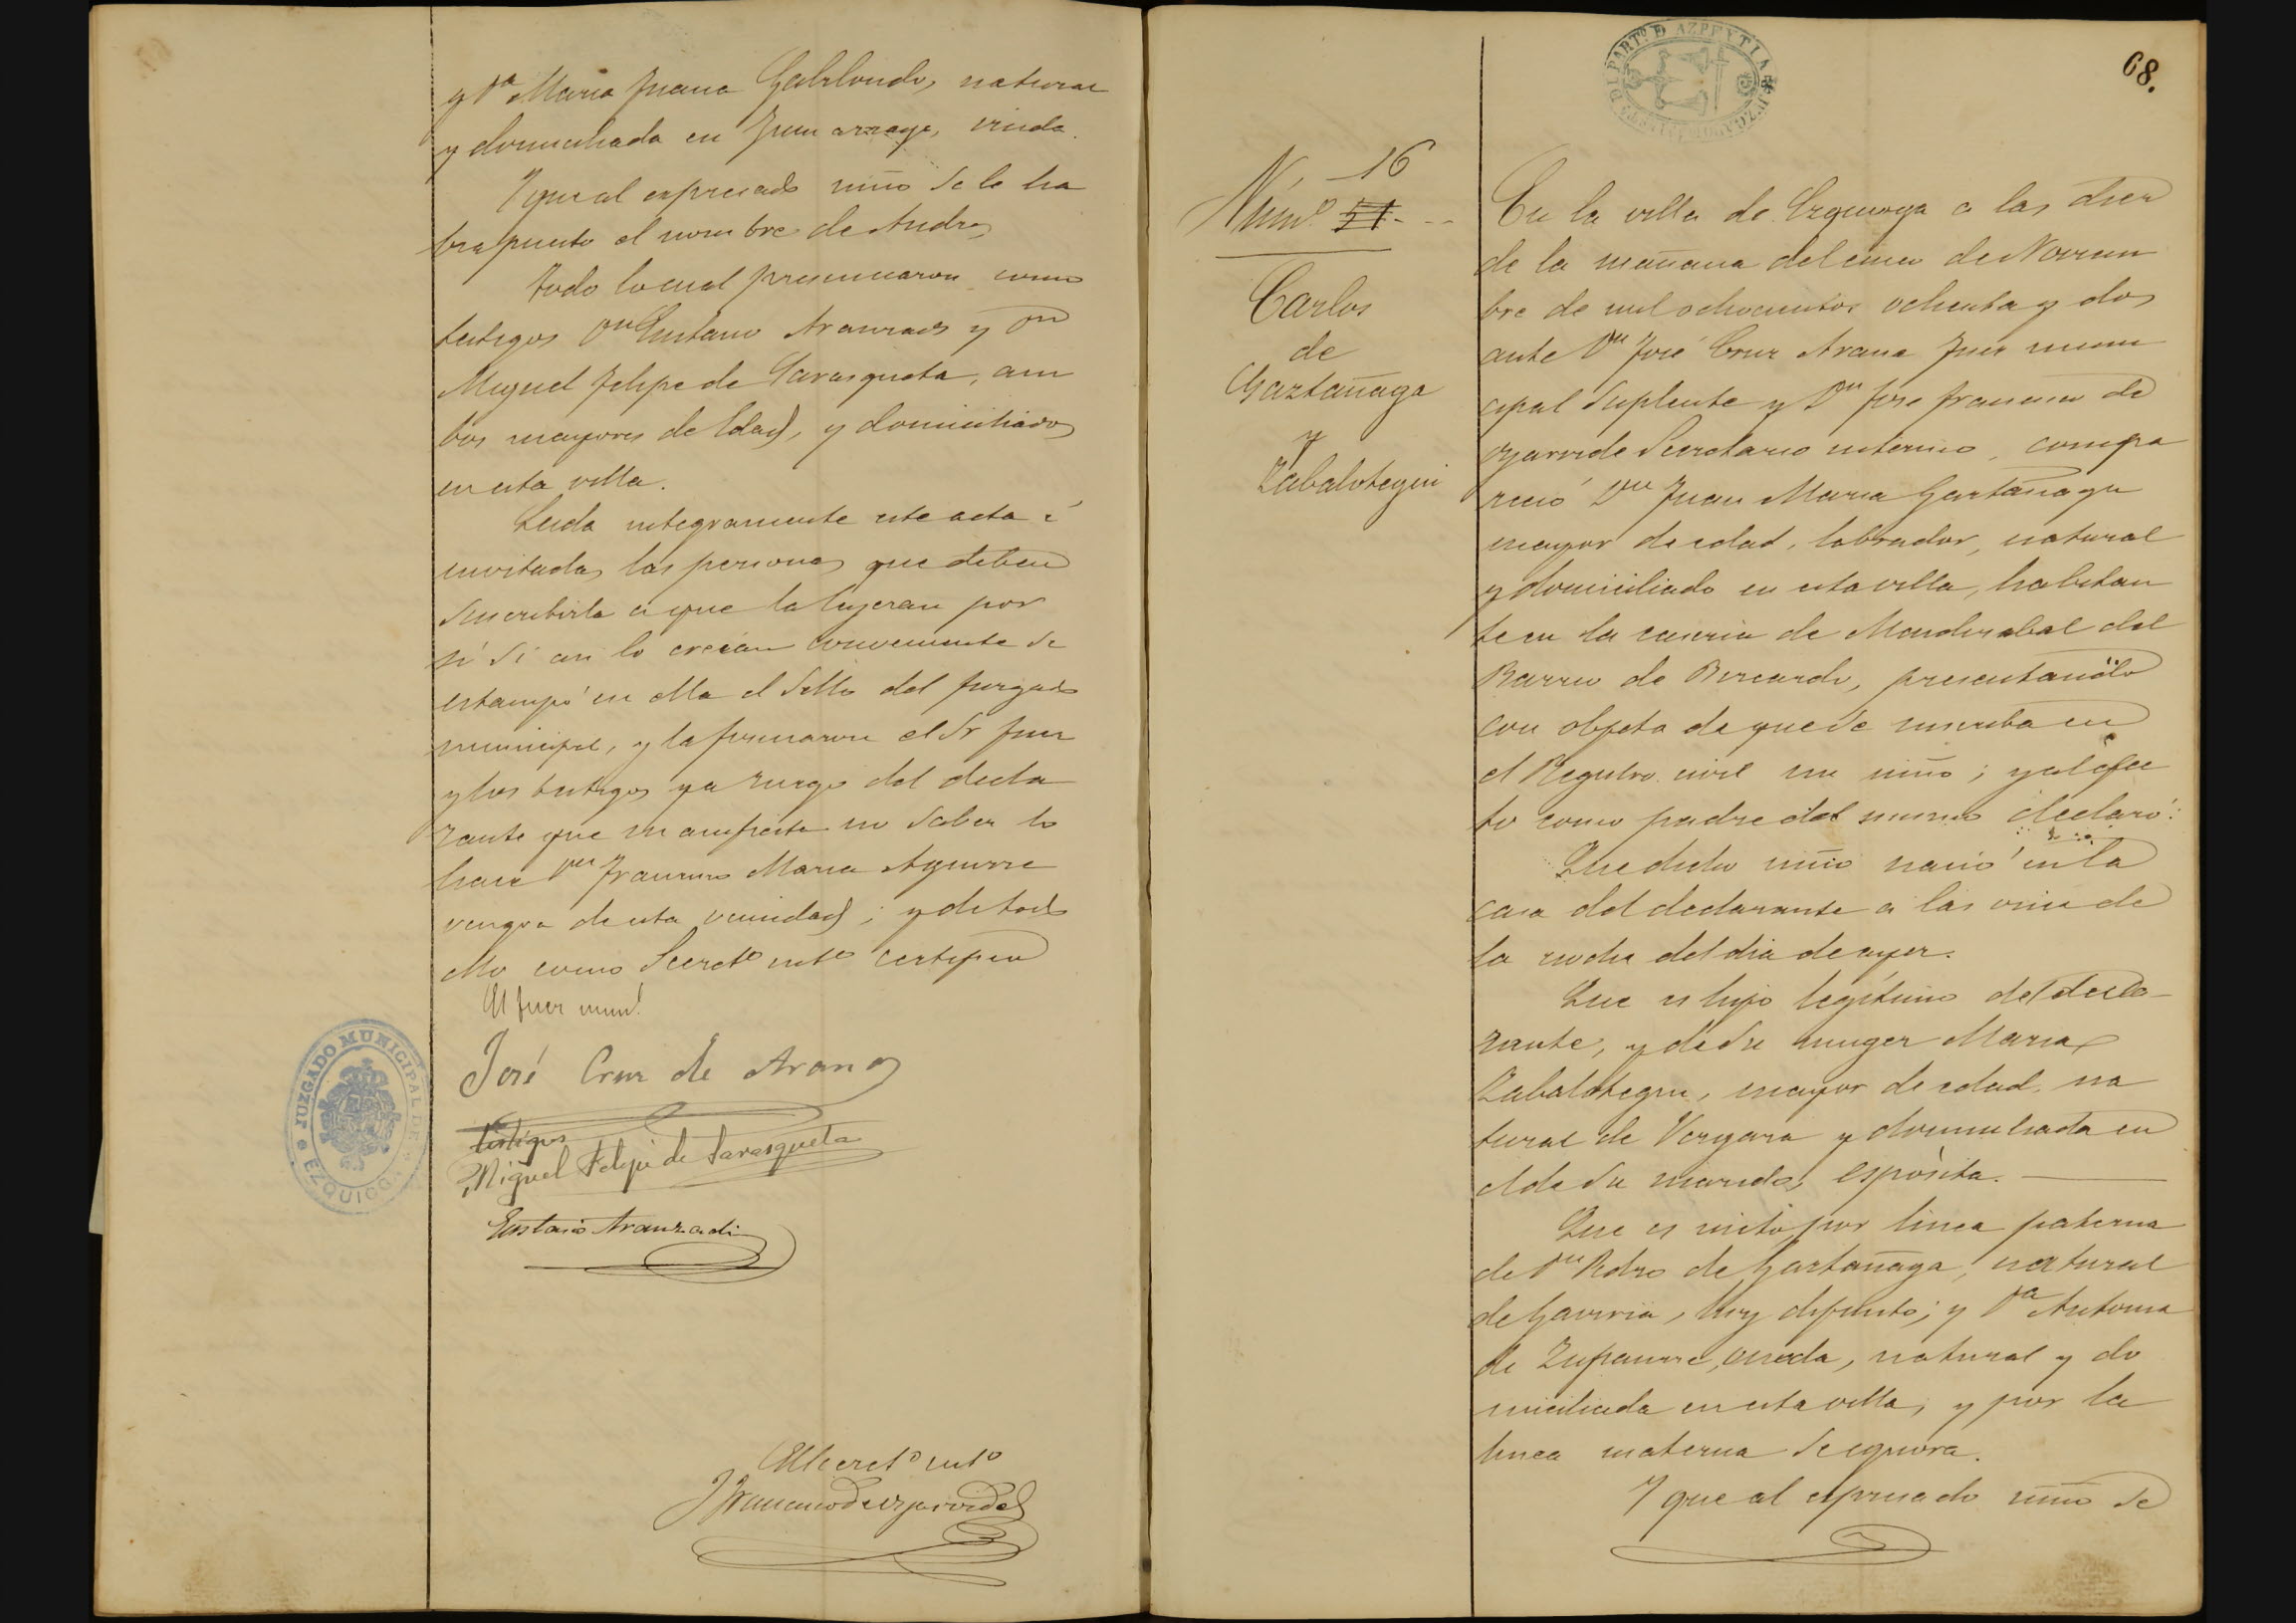 y Dª Maria Juana Gabilondo, natural
y domiciliada en Zumarraga, viuda.
Y que al expresado niño se le ha
bia puesto el nombre de Andres
Todo lo cual presenciaron como
testigos Dn Eustasio Aranzadi y Dn
Miguel Felipe de Sarasqueta, am
bos mayores de Edad, y domiciliados
en esta villa.
Leida integramente este acta é
invitadas las personas que deben
suscribirla á que la leyeran por
si si asi lo creian conveniente se
estampó en ella el Sello del Juzgado
municipal, y la firmaron el Sr Juez
y los testigos y a ruego del decla
rante que manifiesta no saber lo
hace Dn Francisco Maria Aguirre
de esta vecindad; y de todo
ello como Secretº intº certifico
El Juez munl
José Cruz de Arana
testigos
Miguel Felipe de Sarasqueta
Eustasio Aranzadi
El Secretº intº
JUZGADO MUNICIPAL DE EZQUIOGA
68.
PARTº D AZPEYTIA
16
Númº 21.
Carlos
de
Gaztañaga
y
Zabalotegui
En la villa de Ezquioga a las diez
de la mañana del cinco de Noviem
bre de mil ochocientos ochenta y dos
ante Dn José Cruz Arana Juez muni
cipal Suplente y Dn Jose Francisco de
Secretario interino, compa
reció Dn Juan Maria Gaztañaga
mayor de edad, labrador, natural
y domiciliado en esta villa, habitan
te en la caseria de del
Barrio de presentando
con objeto de que se inscriba en
el Registro civil un niño; y al efec
to como padre del mismo declaró:
Que dicho niño nació en la
casa del declarante a las once de
la noche del dia de ayer.
Que es hijo legítimo del decla-
rante, y de su muger Maria
Zabalotegui, mayor de edad, na
tural de Vergara y domiciliada en
el de su marido, espósita.
Que es nieto por linea paterna
de Dn Pedro de Gaztañaga, natural
de Gaviria, hoy difunto; y Dª Antonia
de viuda, natural y do
miciliada en esta villa, y por la
linea materna se ignora.
Y que al espresado niño se